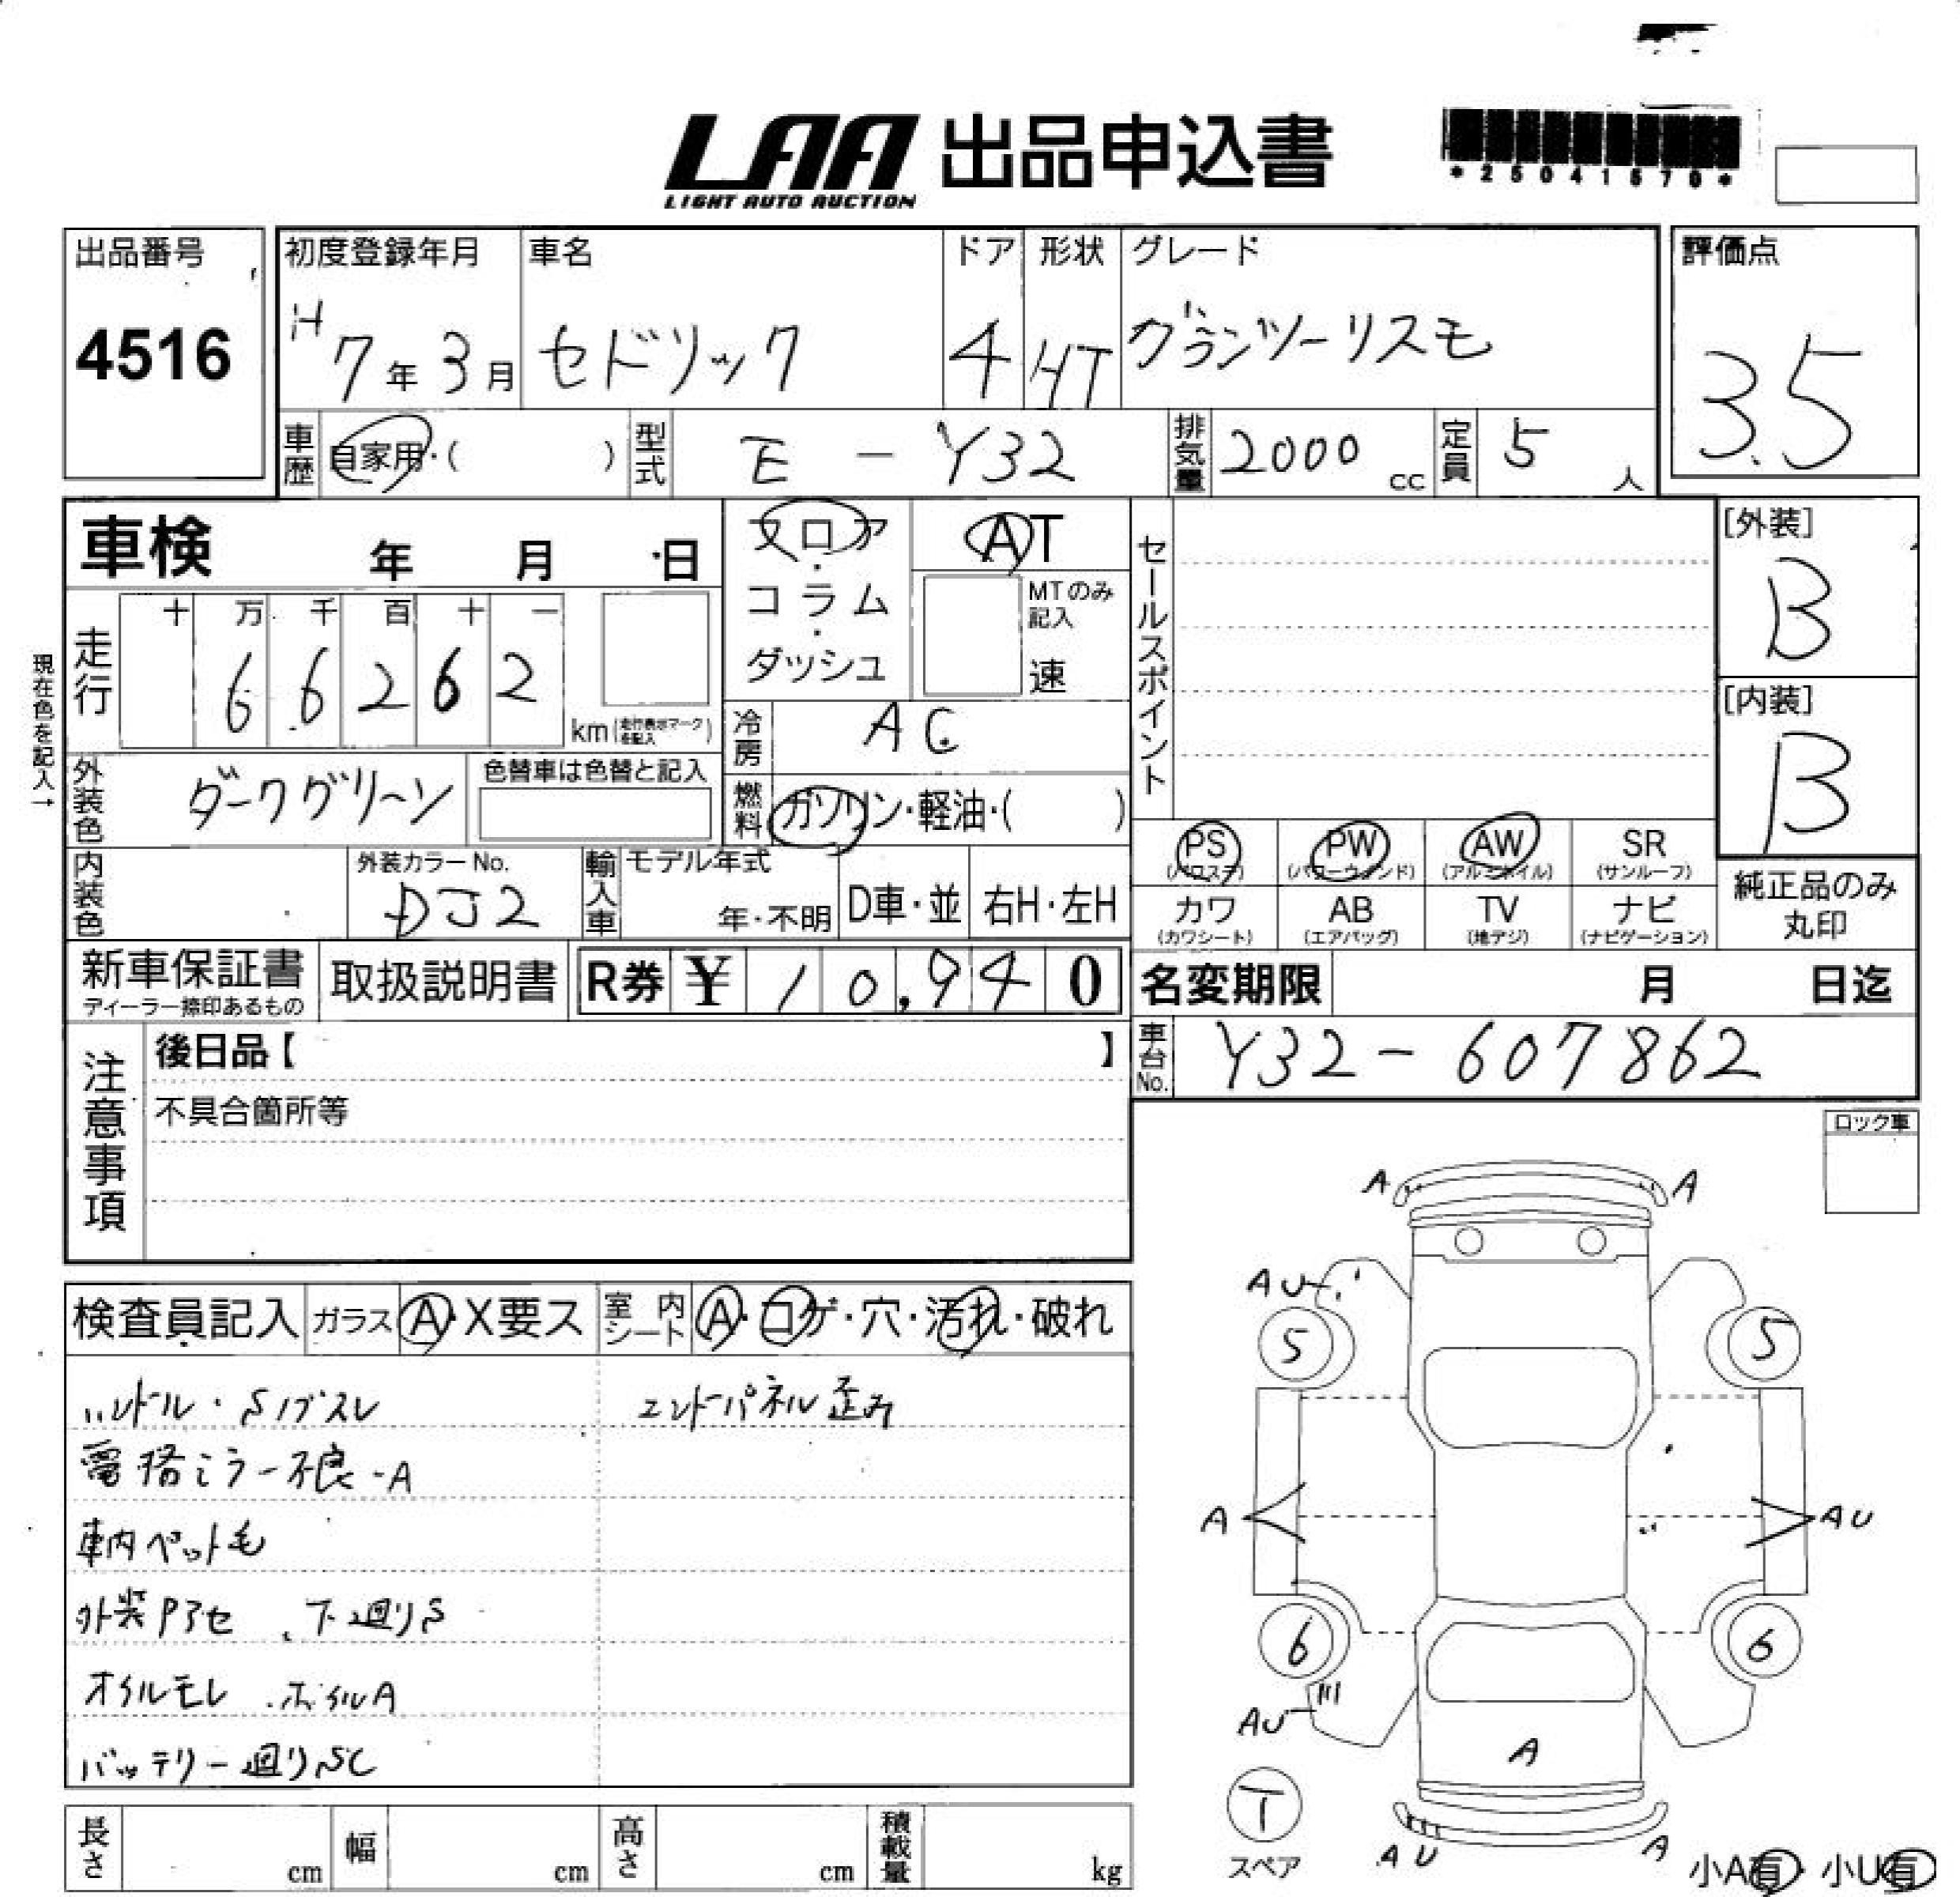 LAA 出品申込書
LIGHT AUTO AUCTION
*25041570*
出品番号
4516
初度登録年月
H7年3月
車名
セドリック
ドア
4
形状
HT
グレード
グランツーリスモ
評価点
3.5
車歴 自家用・( )
型式 E-Y32
排気量 2000 cc
定員 5 人
車検 年 月 日
フロア・コラム・ダッシュ
AT
MTのみ記入
速
セールスポイント
[外装]
B
[内装]
B
現在色を記入→
走行 十 万 千 百 十 一
6 6 2 6 2
km(走行表示マークを記入)
冷房 AC
外装色 ダークグリーン
色替車は色替と記入
燃料 ガソリン・軽油・( )
PS (パワステ) PW (パワーウィンド) AW (アルミホイル) SR (サンルーフ)
内装色
外装カラーNo.
DJ2
輸入車 モデル年式
年・不明 D車・並 右H・左H
カワ (カワシート) AB (エアバッグ) TV (地デジ) ナビ (ナビゲーション)
純正品のみ
丸印
新車保証書
ディーラー捺印あるもの
取扱説明書
R券 ¥ 10,940
名変期限 月 日迄
車台No. Y32-607862
注意事項
後日品【 】
不具合箇所等
ロック車
検査員記入 ガラス A・X要ス 室内シート A・コゲ・穴・汚れ・破れ
ハンドル・Sノブスレ
エンドパネル歪み
電格ミラー不良-A
車内ペット毛
外装アセ 下廻りS
オイルモレ ホイルA
バッテリー廻りSC
A A
AU
5 5
A AU
6 6
AU
A
T
スペア
AU A
小A有・小U有
長さ cm 幅 cm 高さ cm 積載量 kg